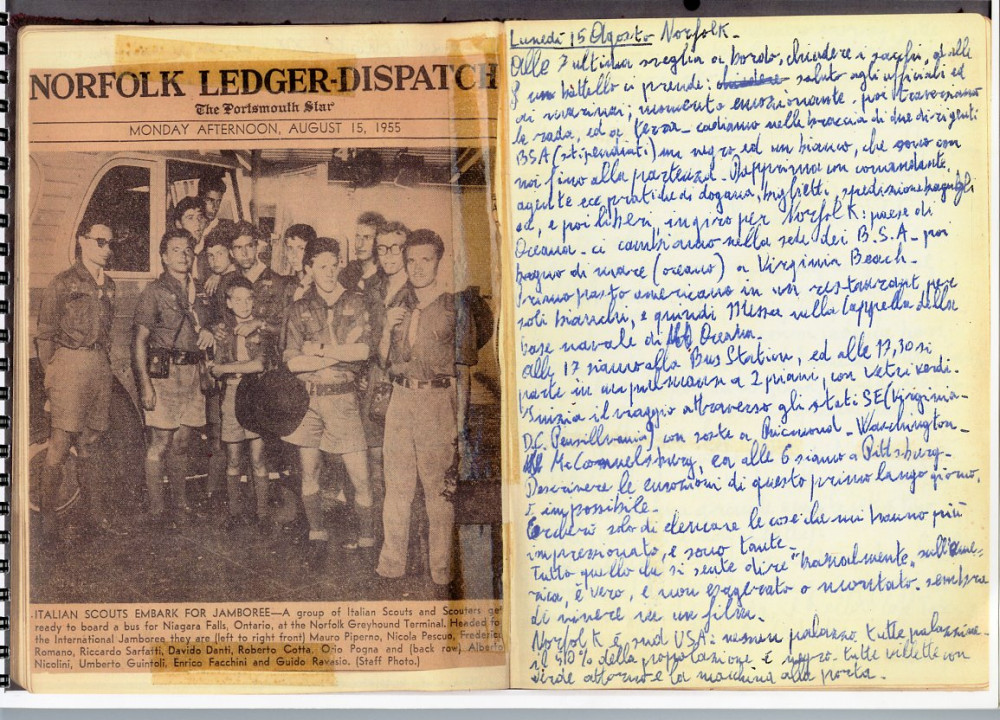 NORFOLK LEDGER-DISPATCH
The Portsmouth Star
MONDAY AFTERNOON, AUGUST 15, 1955
ITALIAN SCOUTS EMBARK FOR JAMBOREE—A group of Italian Scouts and Scouters ge
ready to board a bus for Niagara Falls, Ontario, at the Norfolk Greyhound Terminal. Headed fo
the International Jamboree they are (left to right front) Mauro Piperno, Nicola Pescua, Frederico
Romano, Riccardo Sarfatti, Davido Danti, Roberto Cotta, Orio Pogna and (back row) Alberto
Nicolini, Umberto Guintoli, Enrico Facchini and Guido Ravasio. (Staff Photo.)
Lunedì 15 Agosto Norfolk.
Alle 7 ultima sveglia a bordo, chiudere i sacchi, alle
8 un battello ci prende: saluto agli ufficiali ed
ai marinai; momento emozionante. poi traversiamo
la rada, ed a terra cadiamo nelle braccia di due dirigenti
BSA (stipendiati) un negro ed un bianco, che sono con
noi fino alla partenza. con comandante,
agente ecc pratiche di dogana, biglietti, spedizione bagagli
ed, e poi liberi, in giro per Norfolk: paese di
Oceana. ci cambiamo nella sede dei B.S.A. poi
bagno di mare (oceano) a Virginia Beach.
Primo pasto americano in un restaurant per
soli bianchi, e quindi Messa nella Cappella della
base navale di Oceana.
Alle 17 siamo alla Bus Station, ed alle 17,30 si
parte in un pullman a 2 piani, con vetri verdi.
Inizia il viaggio attraverso gli stati SE (Virginia-
D.C. Pensillvania) con soste a Ricmond - Washington -
McConnelsburg, ed alle 6 siamo a Pittsburg.
Descrivere le emozioni di questo primo lungo giorno,
è impossibile.
Cercherò solo di elencare le cose che mi hanno più
impressionato, e sono tante.
Tutto quello che si sente dire "banalmente" sull'ame-
rica, è vero, e non esagerato o montato. sembra
di vivere in un film.
Norfolk è sud USA: nessun palazzo, tutte palazzine.
il 50% della popolazione è negro. tutte villette con
verde attorno e la macchina alla porta.